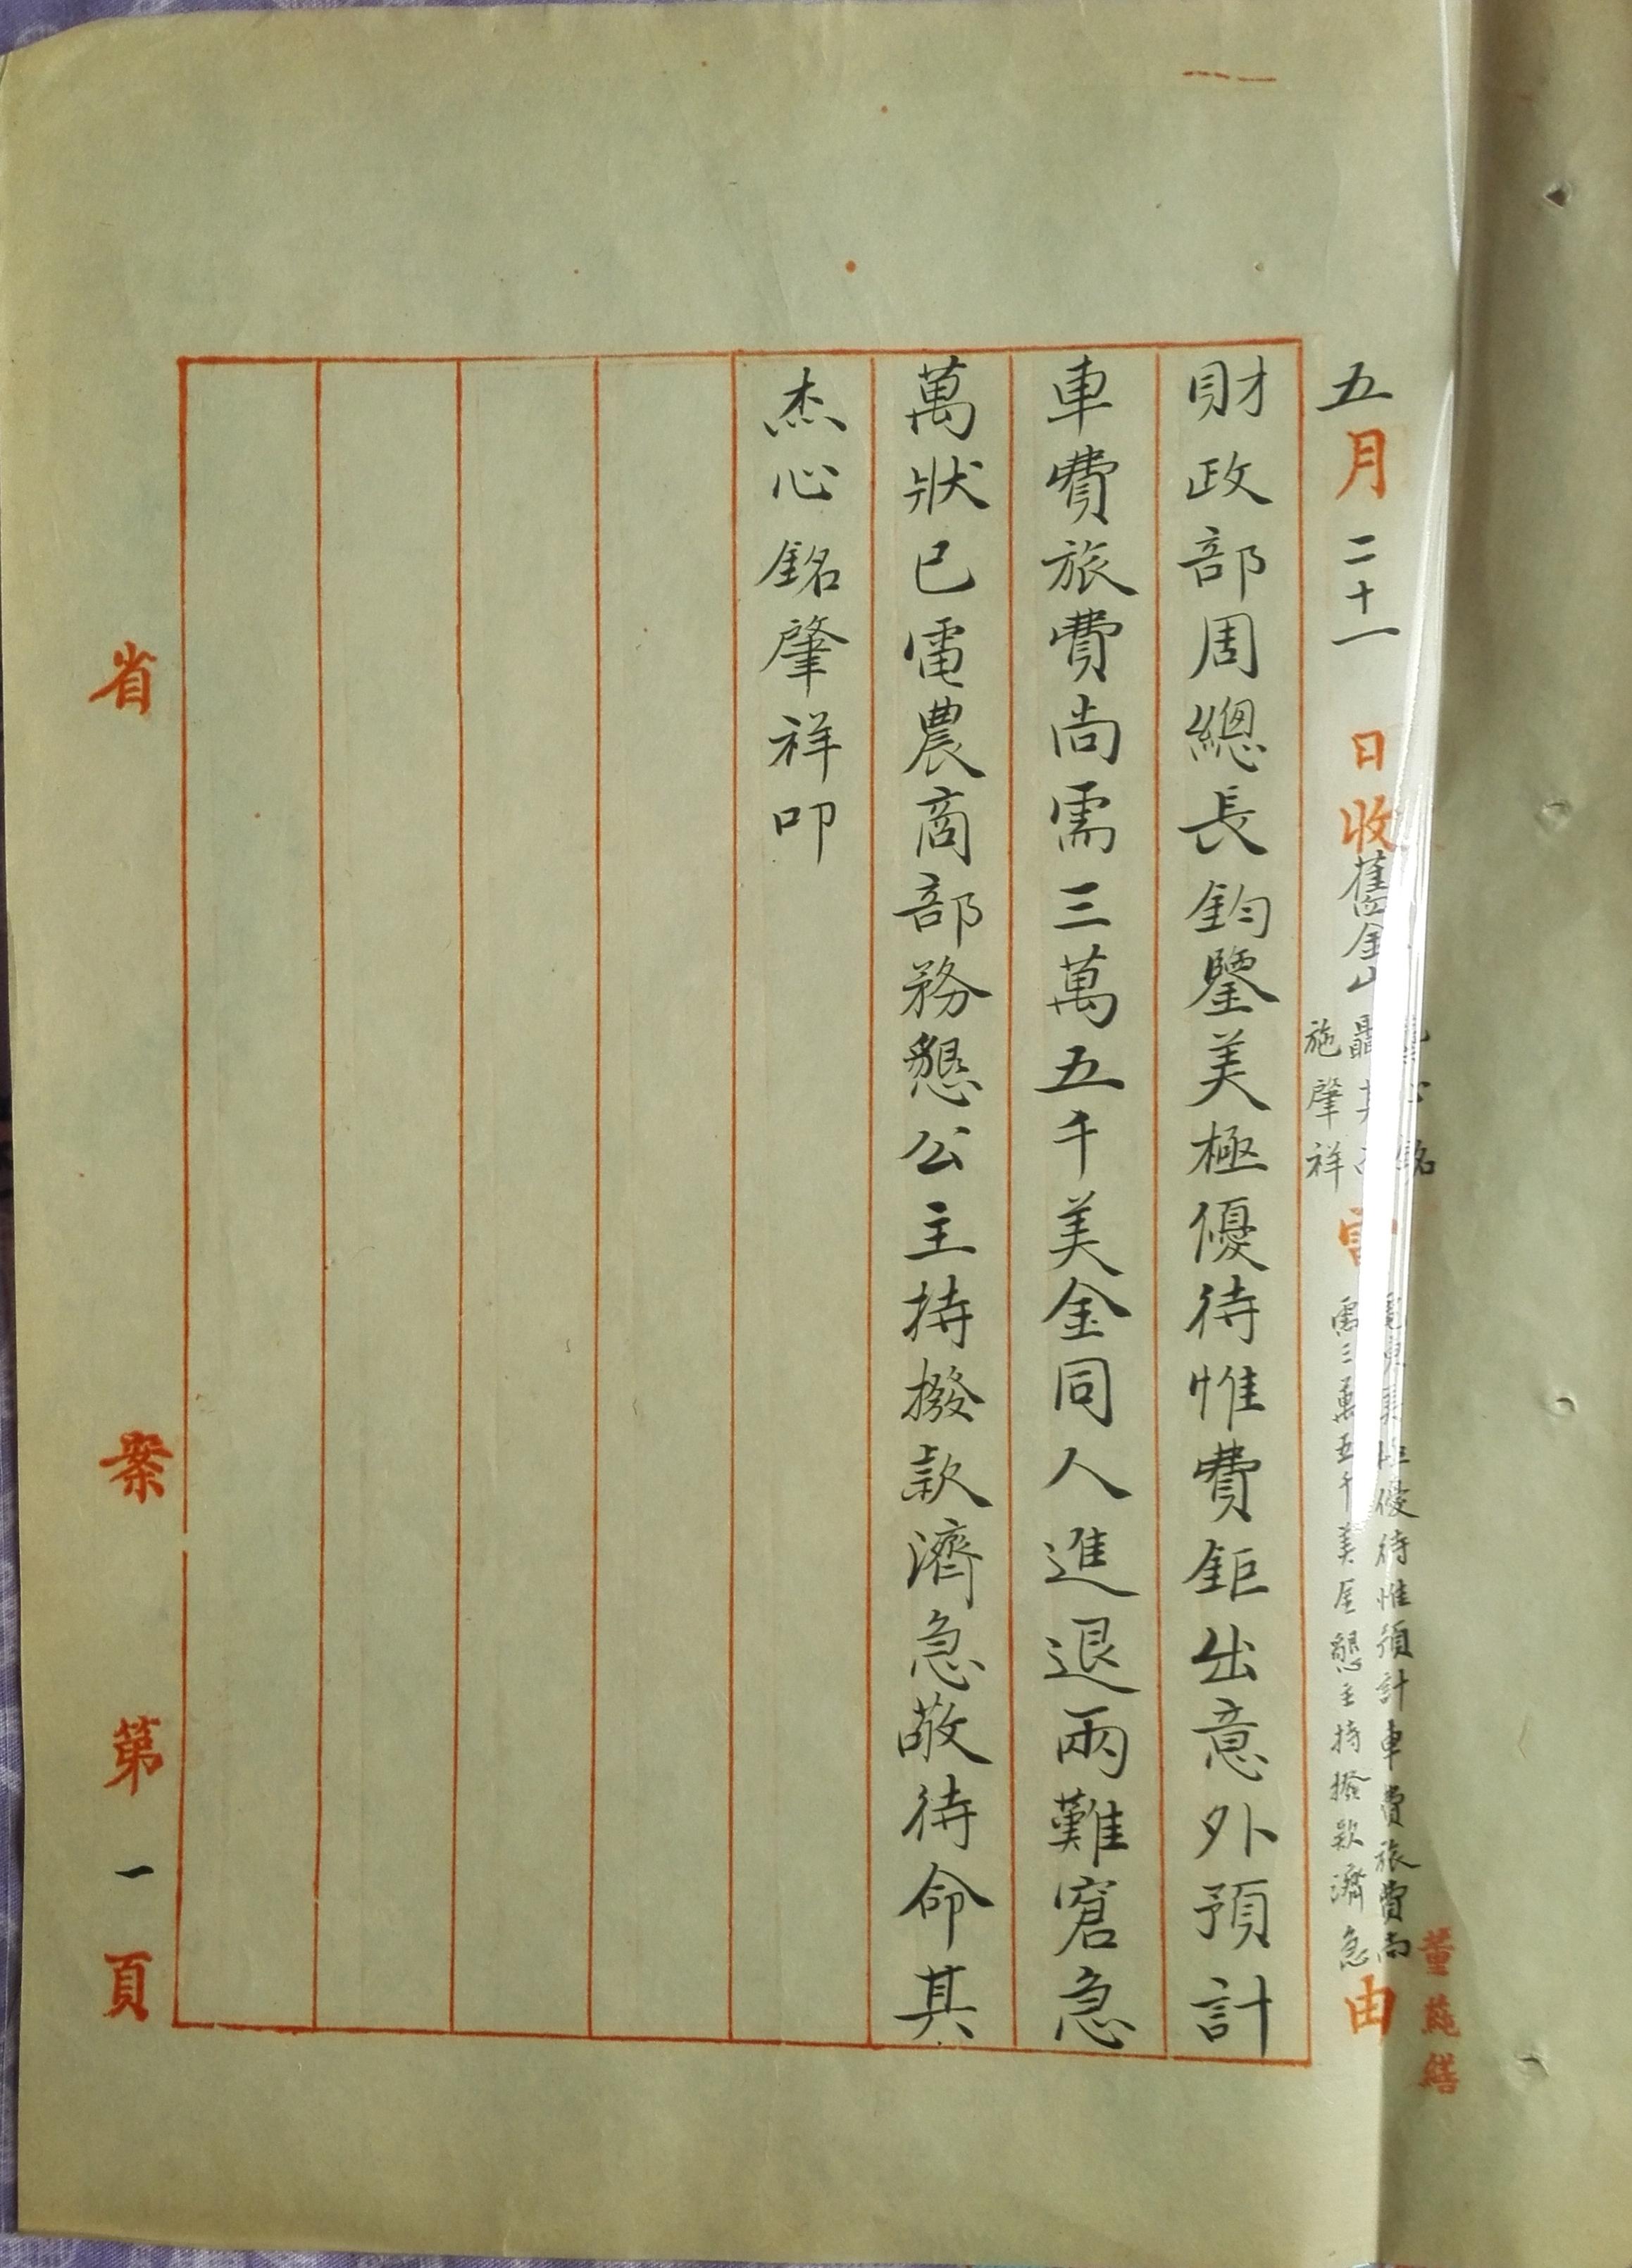 董蒓繕
五月二十一日收舊金山
心銘
聶其
施肇祥
電
美極優待惟預計車費旅費尚
需三萬五千美金懇主持撥款濟急
由
財政部周總長鈞鑒美極優待惟費鉅出意外預計
車費旅費尚需三萬五千美金同人進退兩難窘急
萬狀已電農商部務懇公主持撥款濟急敬待命其
杰心銘肇祥叩
省 案 第一頁